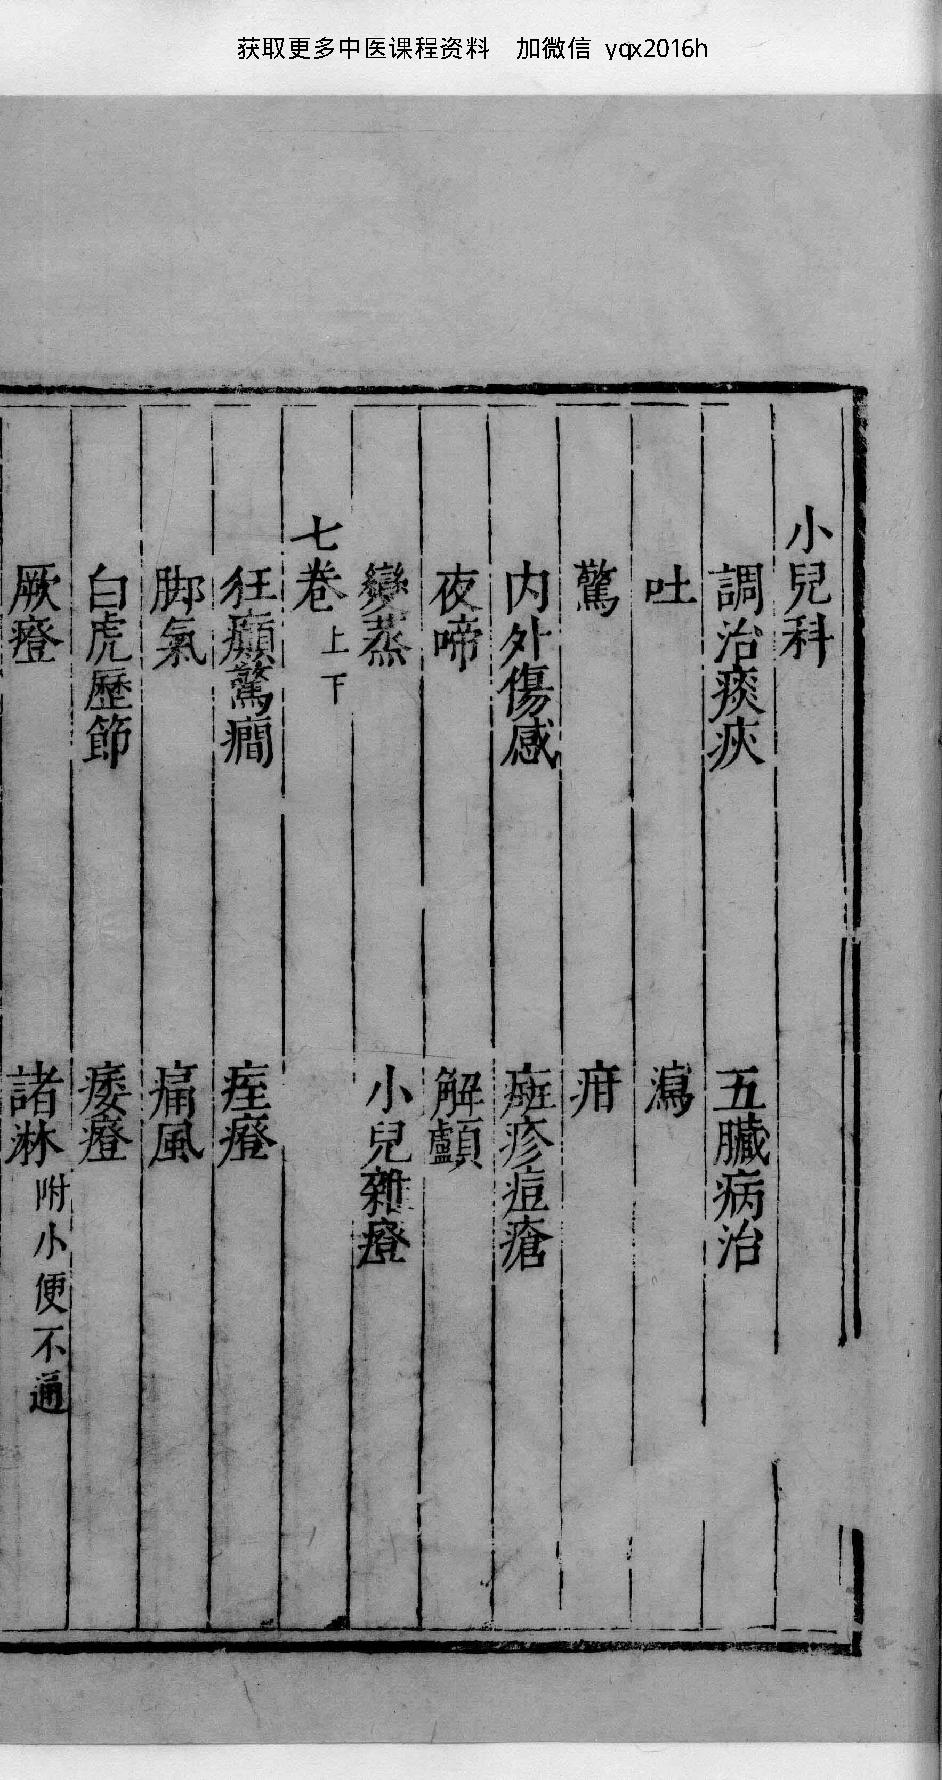 获取更多中医课程资料 加微信 yqx2016h
小兒科
調治痰疾 五臟病治
吐 瀉
驚 疳
内外傷感 斑疹痘瘡
夜啼 解顱
變蒸 小兒雜證
七卷上下
狂癲驚癇 痓證
脚氣 痛風
白虎歷節 痿證
厥證 諸淋附小便不通